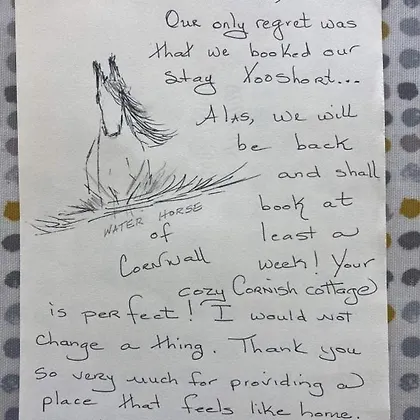 Our only regret was
that we booked our
stay Tooshort...
Alas, we will
be back
and shall
book at
least a
week! Your
cozy Cornish cottage
is perfect! I would not
change a thing. Thank you
so very much for providing a
place that feels like home.
WATER HORSE
of
Cornwall